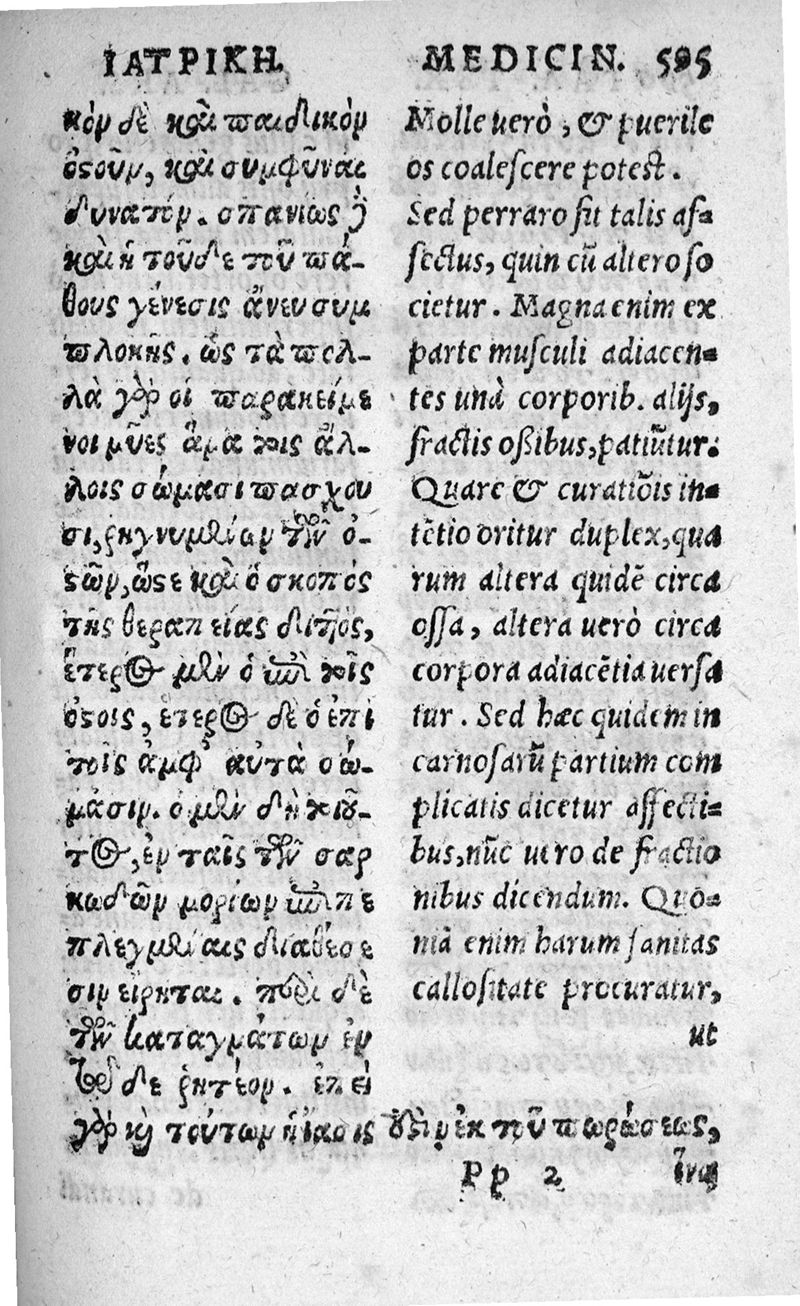 ΙΑΤΡΙΚΗ.
κὸν δὲ καὶ παιδικὸν
ὀστοῦν, καὶ συμφῦναι
δυνατόν. σπανίως δὲ
καὶ ἡ τοῦδε τοῦ πά-
θους γένεσις ἄνευ συμ
πλοκῆς. ὡς τὰ πολ-
λὰ γὰρ οἱ παρακείμε
νοι μῦες ἅμα τοῖς ἄλ-
λοις σώμασι πάσχου
σι, ῥηγνυμένων τῶν ὀ-
στῶν, ὥστε καὶ ὁ σκοπὸς
τῆς θεραπείας διττὸς,
ἕτερος μὲν ὁ ἐπὶ τοῖς
ὀστοῖς, ἕτερος δὲ ὁ ἐπὶ
τοῖς ἀμφ' αὐτὰ σώ-
μασιν. ὁ μὲν δὴ τοιοῦ-
τος, ἐν ταῖς τῶν σαρ
κωδῶν μορίων ἐπιπε
πλεγμέναις διαθέσε
σιν εἴρηται. περὶ δὲ
τῶν καταγμάτων ἐν
τῷ δε ῥητέον. ἐπεὶ
γὰρ καὶ τούτων ἡ ἴασίς ἐστιν ἐκ τοῦ πωρώσεως,
ἵνα
MEDICIN. 595
Molle uerò, & puerile
os coalescere potest.
Sed perraro fit talis af-
fectus, quin cũ altero so
cietur. Magna enim ex
parte musculi adiacen-
tes unà corporib. alijs,
fractis oßibus, patiũtur:
Quare & curatiõis in-
tẽtio oritur duplex, qua
rum altera quidẽ circa
ossa, altera uerò circa
corpora adiacẽtia uersa
tur. Sed hæc quidem in
carnosarũ partium com
plicatis dicetur affecti-
bus, nũc uero de fractio
nibus dicendum. Quo-
niã enim harum sanitas
callositate procuratur,
ut
Pp 2